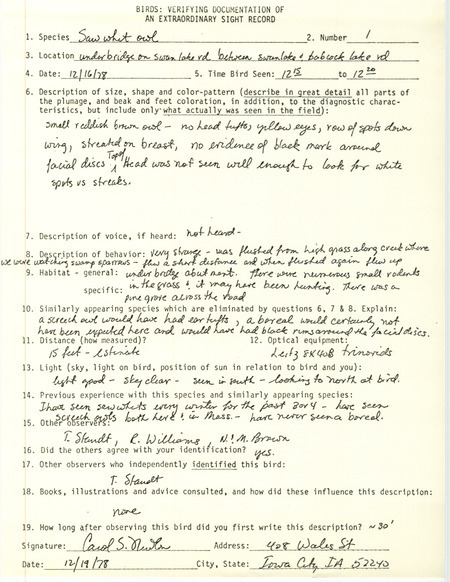 BIRDS: VERIFYING DOCUMENTATION OF
AN EXTRAORDINARY SIGHT RECORD
1. Species Saw whet owl 2. Number 1
3. Location under bridge on swan lake rd between swan lake & babcock lake rd
4. Date: 12/16/78 5. Time Bird Seen: 12 15 to 12 20
6. Description of size, shape and color-pattern (describe in great detail all parts of
the plumage, and beak and feet coloration, in addition, to the diagnostic charac-
teristics, but include only what actually was seen in the field):
small reddish brown owl - no head tufts, yellow eyes, row of spots down
wing, streaked on breast, no evidence of black mark around
facial discs Top of Head was not seen well enough to look for white
spots vs streaks.
7. Description of voice, if heard: not heard -
8. Description of behavior: very strange - was flushed from high grass along creek where
we were watching swamp sparrows - flew a short distance and when flushed again flew up
9. Habitat - general: under bridge abutment. There were numerous small rodents
specific: in the grass & it may have been hunting. There was a
pine grove across the road
10. Similarly appearing species which are eliminated by questions 6, 7 & 8. Explain:
a screech owl would have had ear tufts, a boreal would certainly not
have been expected here and would have had black rims around the facial discs.
11. Distance (how measured)? 12. Optical equipment:
15 feet - estimate Leitz 8x40B trinovids
13. Light (sky, light on bird, position of sun in relation to bird and you):
light good - sky clear - sun in south - looking to north at bird.
14. Previous experience with this species and similarly appearing species:
I have seen saw whets every winter for the past 3 or 4 - have seen
screech owls both here & in Mass. - have never seen a boreal.
15. Other observers:
T. Staudt, R. Williams, N. & M. Brown
16. Did the others agree with your identification? yes.
17. Other observers who independently identified this bird:
T. Staudt
18. Books, illustrations and advice consulted, and how did these influence this description:
none
19. How long after observing this bird did you first write this description? ~30'
Signature: Carol S. Newlon Address: 408 Wales St
Date: 12/19/78 City, State: Iowa City IA 52240